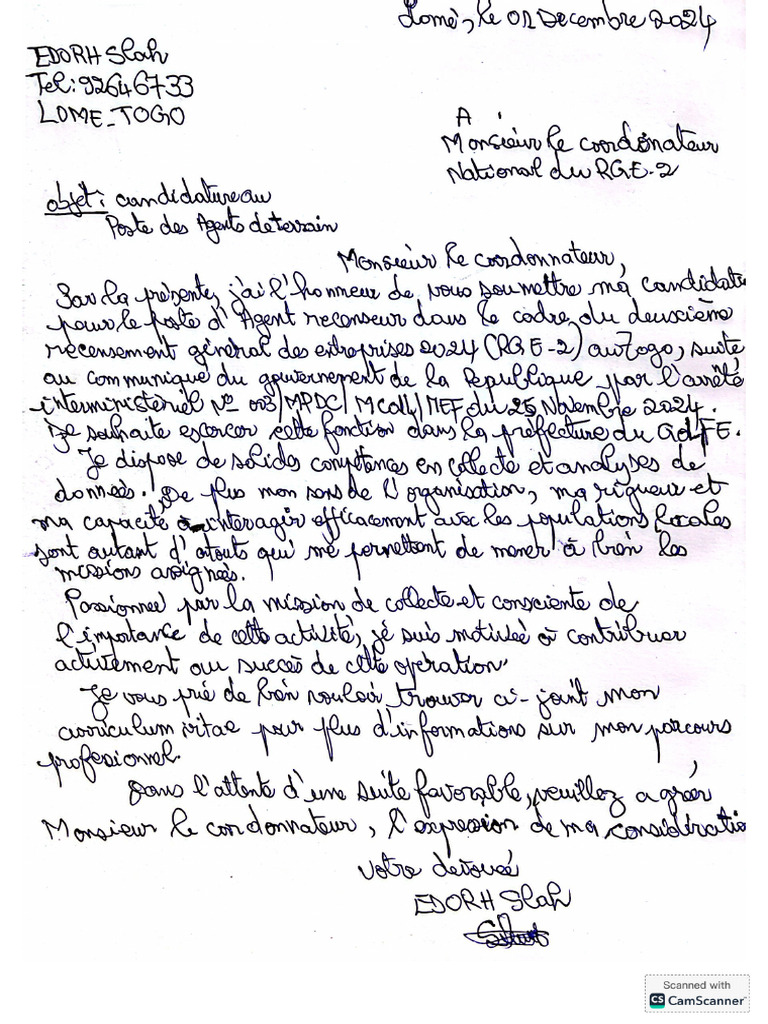 Lomé, le 02 Decembre 2024
EDORH Slah
Tel: 92646733
LOME_TOGO
A
Monsieur le coordonateur
National du RGE-2
objet: candidature au
Poste des Agents de terrain
Monsieur le coordonnateur,
Par la présente, j'ai l'honneur de vous soumettre ma candidatu
pour le poste d'Agent recenseur dans le cadre du deuxième
recensement général des entreprises 2024 (RGE-2) au Togo, suite
au communiqué du gouvernement de la Republique par l'arrêté
interministériel N° 003/MPDC/ /MEF du 25 Novembre 2024.
Je souhaite exercer cette fonction dans la préfecture du GOLFE.
Je dispose de solides compétences en collecte et analyses de
données. De plus mon sens de l'organisation, ma rigueur et
ma capacité à interagir efficacement avec les populations locales
sont autant d'atouts qui me permettent de mener à bien les
missions assignées.
Passionnée par la mission de collecte et consciente de
l'importance de cette activité, je suis motivée à contribuer
activement au succès de cette opération.
Je vous prie de bien vouloir trouver ci-joint mon
curriculum vitae pour plus d'informations sur mon parcours
profesionnel.
Dans l'attente d'une suite favorable, veuillez agréer
Monsieur le cordonnateur, l'expression de ma considératio
Votre dévouée
EDORH Slah
Scanned with
CS CamScanner